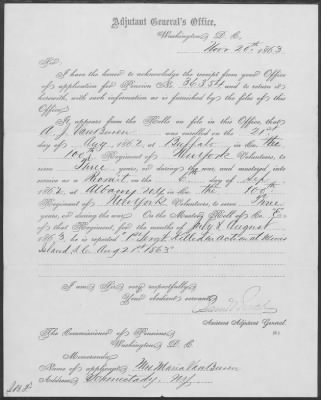 Adjutant General's Office,
Washington D. C.
Nov. 20th 1863
Sir:
I have the honor to acknowledge the receipt from your Office
of application for Pension No. 36354 and to return it
herewith, with such information as is furnished by the files of this
Office.
It appears from the Rolls on file in this Office, that
A. J. VanBuren was enrolled on the 21st
day of Aug 1862, at Buffalo in Co. the
100th Regiment of New York Volunteers, to
serve Three years, or during the war, and mustered into
service as a Recruit on the day of Sep
1862, at Albany NY in the 100th
Regiment of New York Volunteers, to serve Three
years, or during the war. On the Muster Roll of Co.
of that Regiment for the months of July & August
1863, he is reported 1st Sergt Killed in action at Morris
Island S.C. Aug 21st 1863
I am Sir very respectfully
Your obedient servant
Assistant Adjutant General.
The Commissioner of Pensions
Washington D. C.
Memoranda.
Name of applicant Mrs Maria Van Buren
Address Schenectady, NY